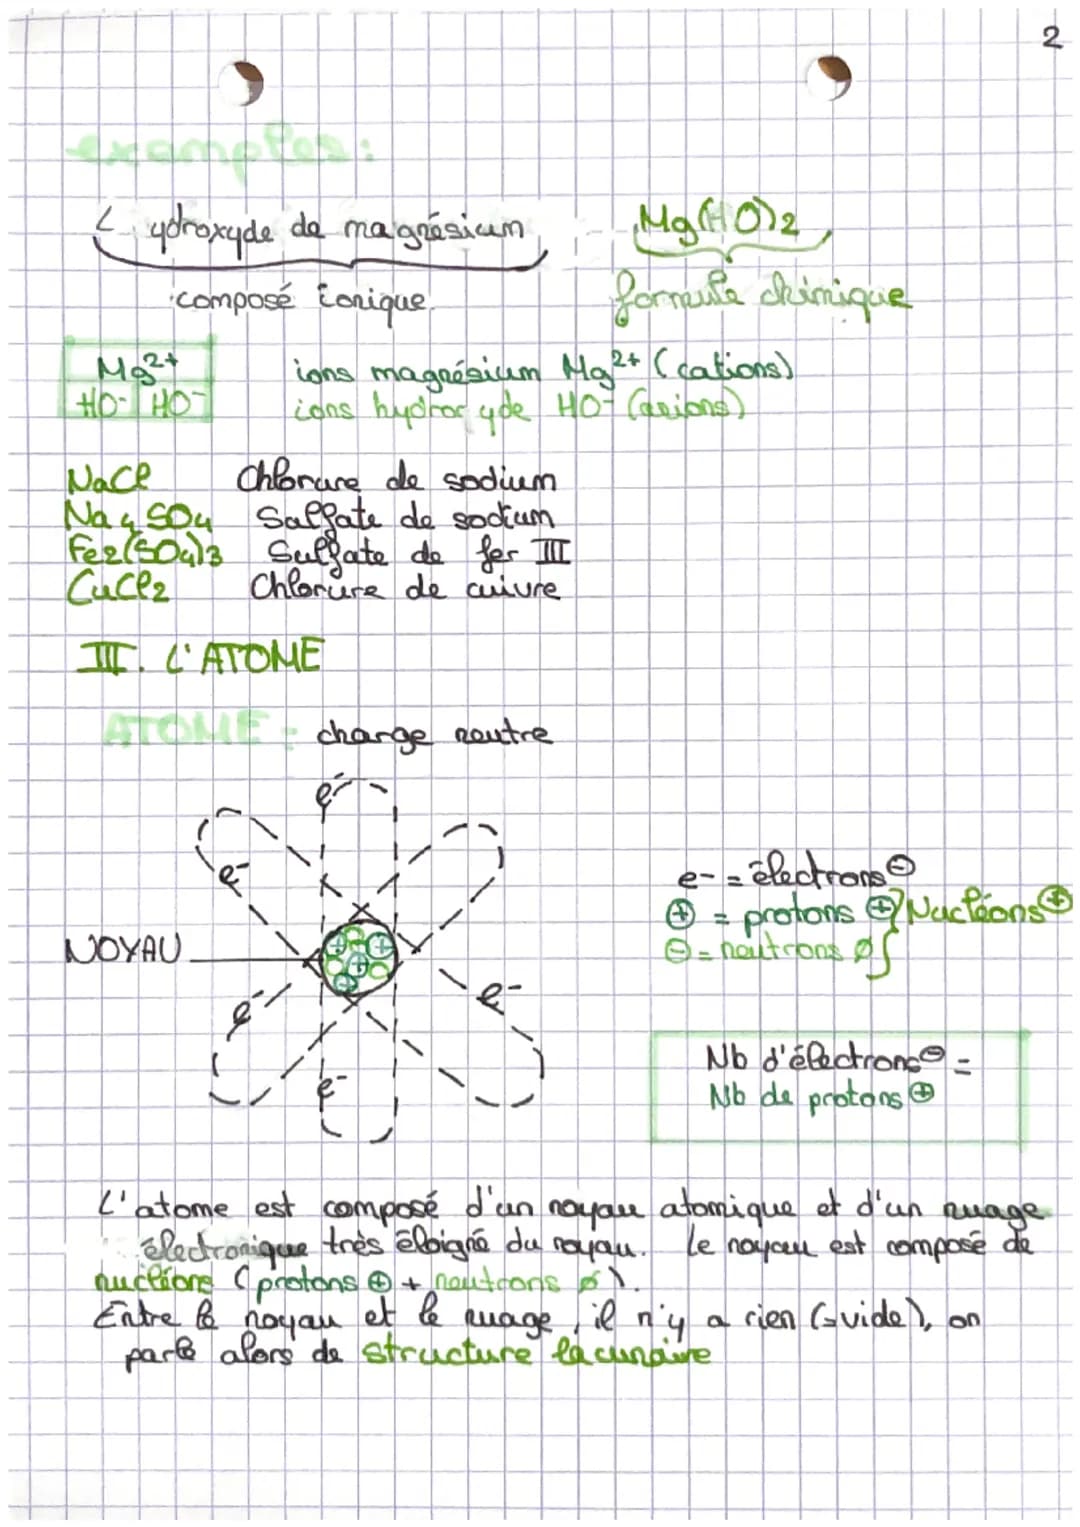 2
examples:
L ydroxyde de magnésium Mg(HO)2
composé ionique. formule chimique
Mg2+ ions magnésium Mg2+ (cations)
HO- HO- ions hydroxyde HO- (anions)
NaCl Chlorure de sodium
Na4SO4 Sulfate de sodium
Fe2(SO4)3 Sulfate de fer III
CuCl2 Chlorure de cuivre
III. L'ATOME
ATOME = charge neutre
e-
e-
e- = électrons ⊖
⊕ = protons ⊕ } Nucléons ⊕
NOYAU
⊖ = neutrons ø
e-
e-
Nb d'électrons ⊖ =
e-
Nb de protons ⊕
L'atome est composé d'un noyau atomique et d'un nuage
électronique très éloigné du noyau. Le noyau est composé de
nucléons (protons ⊕ + neutrons ø).
Entre le noyau et le nuage, il n'y a rien (=vide), on
parle alors de structure lacunaire